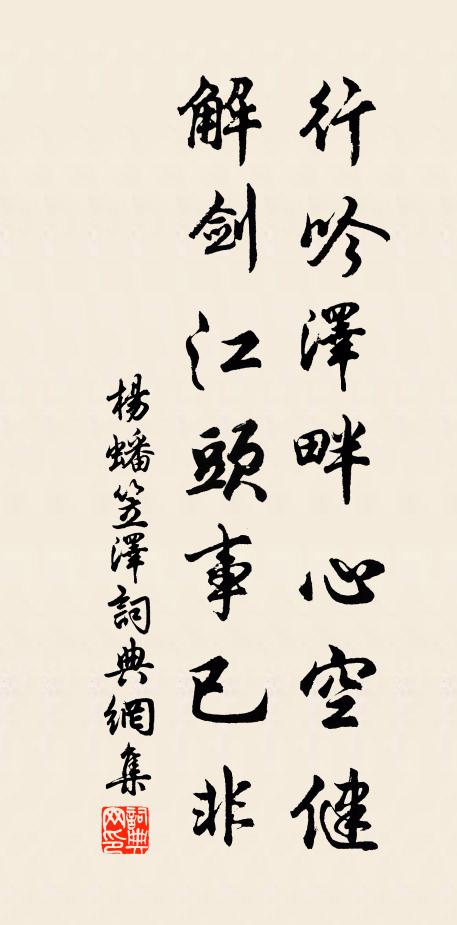 行吟澤畔心空健
解劍江頭事已非
楊蟠笠澤詞典網集
詞典網印